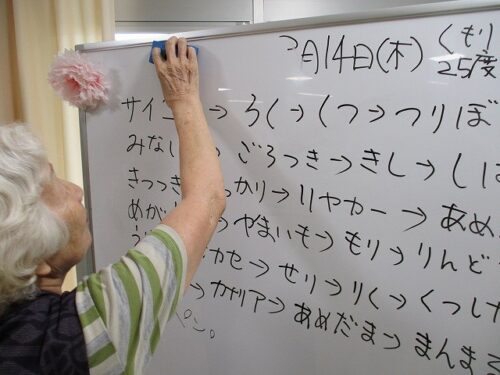 月14日(木) くもり
25度
サイコ → ろく → くつ → つりぼ
みなし ごろつき → きし → し
きつつき かり → リヤカー → あめ
めが やまいも → もり → りんど
カセ → せり → りく → くつした
→ カナリア → あめだま → まんま
ペン。